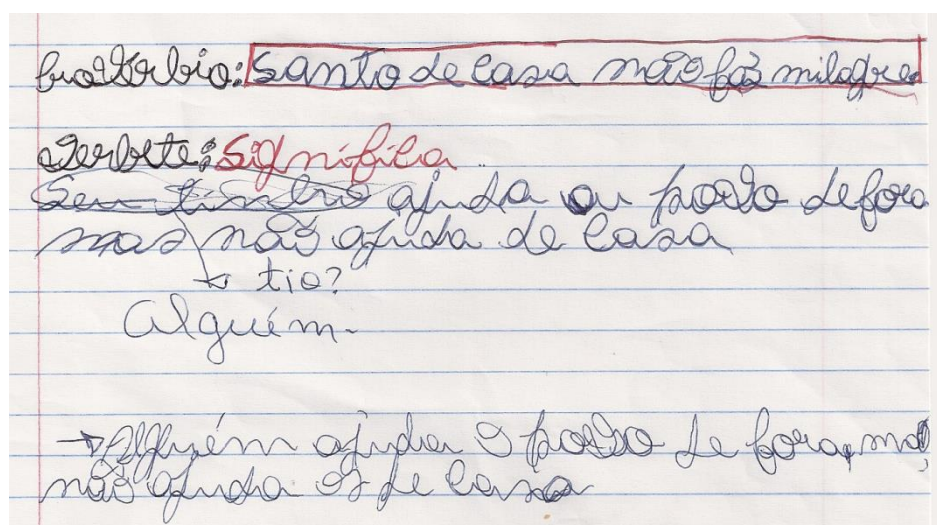 provérbio: Santo de casa não faz milagre
Verbete: Significa
ajuda ou povo de fora
mas não ajuda de casa
→ tio?
Alguém.
→ Alguém ajuda o povo de fora, mas,
não ajuda os de casa